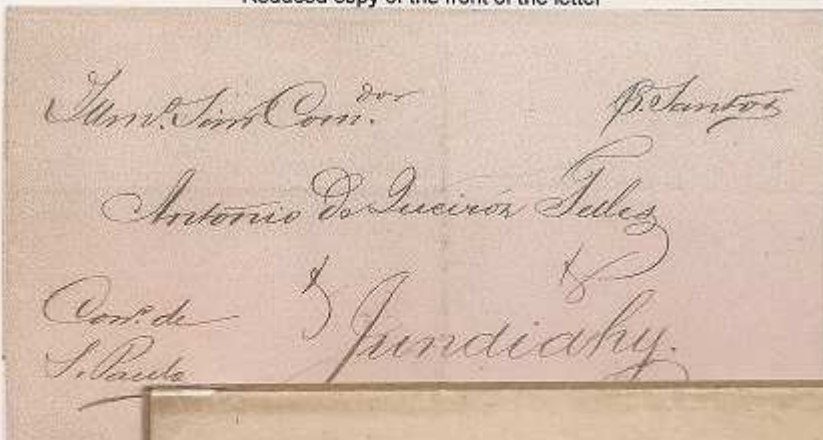 Reduced copy of the front of the letter
Illmo. Snr. Com.dor P. Santos
Antonio De Queiróz Telles
Corro. de
S. Paulo
Jundiahy.